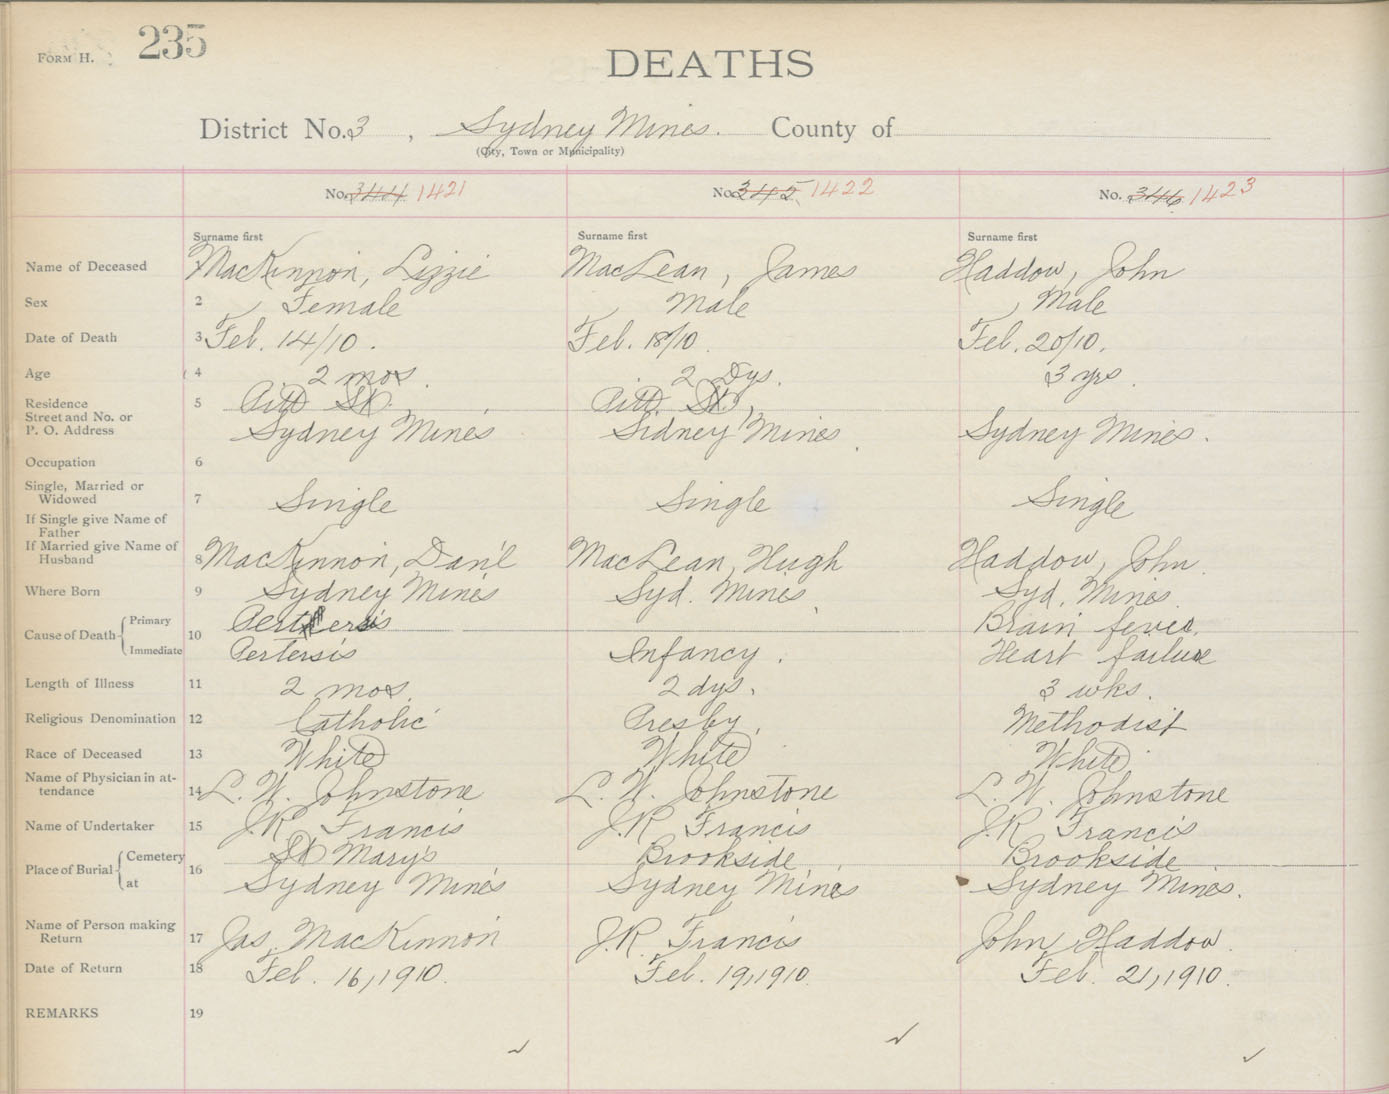 FORM H. 235
DEATHS
District No. 3, Sydney Mines. County of
(City, Town or Municipality)
No. 344 1421 No. 345 1422 No. 346 1423
Surname first Surname first Surname first
Name of Deceased 1 MacKinnon, Lizzie MacLean, James Haddow, John
Sex 2 Female Male Male
Date of Death 3 Feb. 14/10. Feb. 18/10 Feb. 20/10.
Age 4 2 mos. 2 Dys. 3 yrs.
Residence 5 Pitt St. Pitt St.,
Street and No. or
P. O. Address Sydney Mines Sidney Mines. Sydney Mines.
Occupation 6
Single, Married or
Widowed 7 Single Single Single
If Single give Name of
Father
If Married give Name of
Husband 8 MacKinnon, Dan'l MacLean, Hugh Haddow, John.
Where Born 9 Sydney Mines Syd. Mines, Syd. Mines.
Cause of Death Primary 10 Brain fever.
Immediate Pertersis Infancy. Heart failure
Length of Illness 11 2 mos. 2 dys. 3 wks.
Religious Denomination 12 Catholic Presby. Methodist
Race of Deceased 13 White White White
Name of Physician in at-
tendance 14 L. W. Johnstone L. W. Johnstone L. W. Johnstone
Name of Undertaker 15 J.R. Francis J.R. Francis J.R. Francis
Place of Burial Cemetery 16 St Mary's Brookside Brookside
at Sydney Mines Sydney Mines Sydney Mines.
Name of Person making
Return 17 Jas. MacKinnon J.R. Francis John Haddow.
Date of Return 18 Feb. 16, 1910. Feb. 19, 1910. Feb. 21, 1910.
REMARKS 19